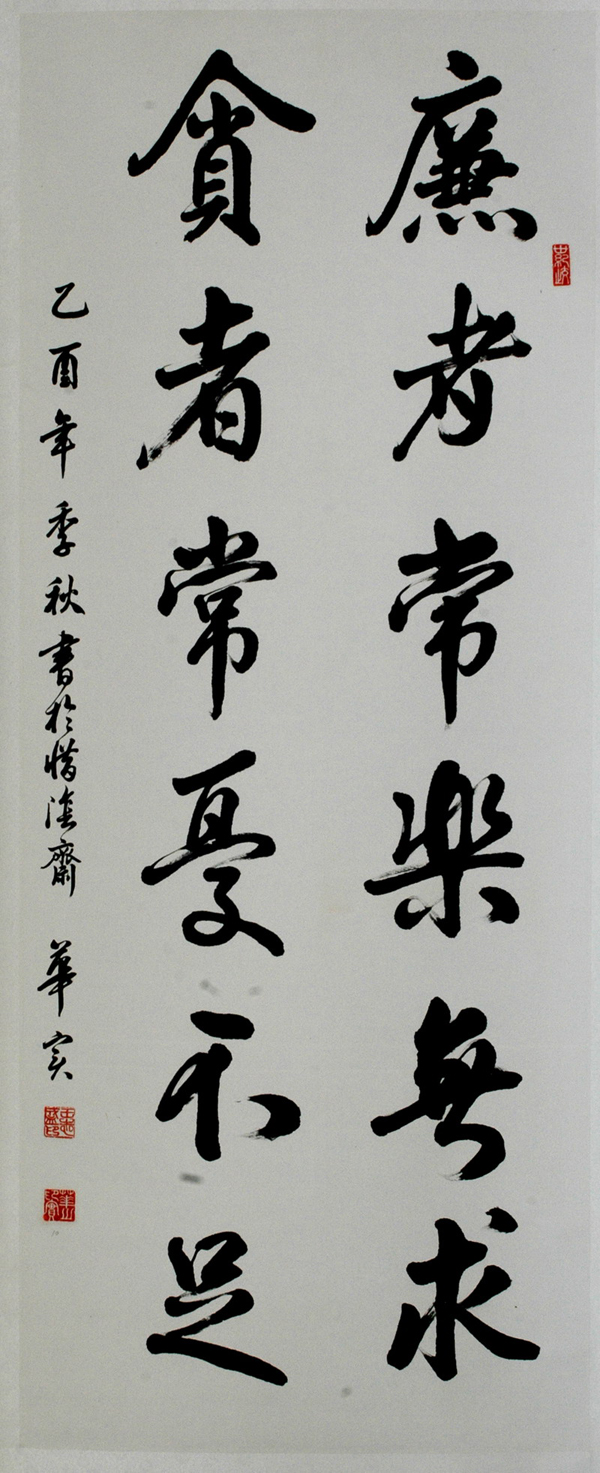 廉者常樂無求
貪者常憂不足
乙酉年季秋書於惜陰齋 華实